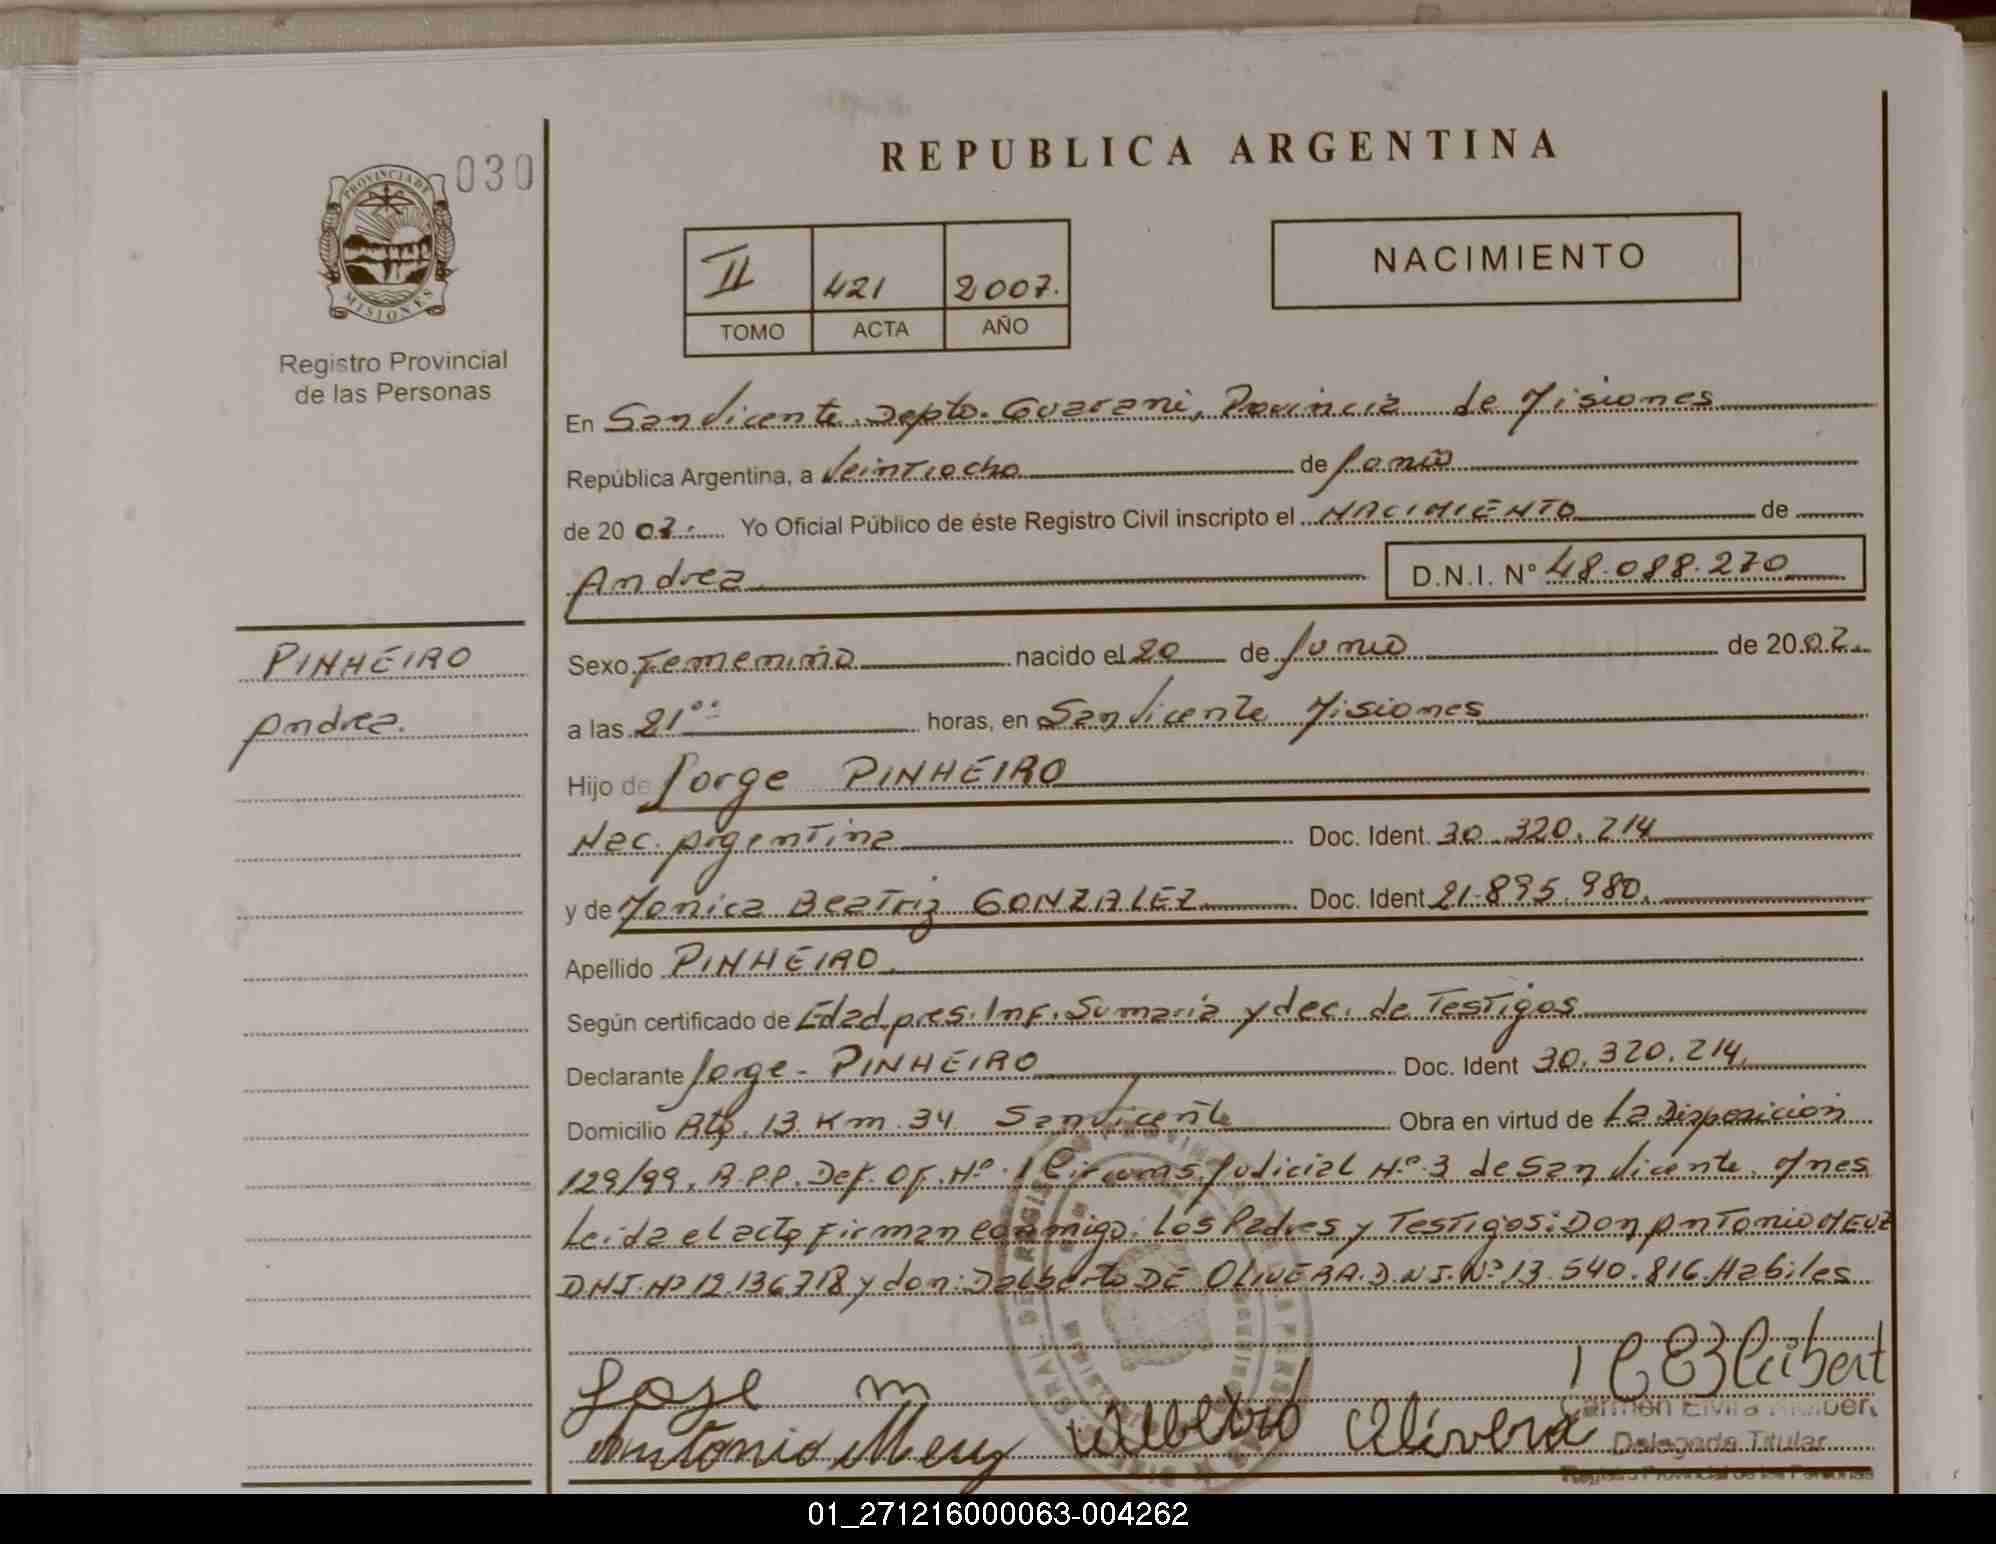 REPUBLICA ARGENTINA
030
PROVINCIA DE
MISIONES
Registro Provincial
de las Personas
II 421 2007.
TOMO ACTA AÑO
NACIMIENTO
En San Vicente Depto. Guarani, Provincia de Misiones
República Argentina, a Veintiocho de Junio
de 20 07. Yo Oficial Público de éste Registro Civil inscripto el NACIMIENTO de
Andrea D.N.I. Nº 48.088.270
PINHEIRO
Andrea.
Sexo Femenino nacido el 20 de Junio de 20 07.
a las 21°° horas, en San Vicente Misiones
Hijo de Jorge PINHEIRO
Nac. Argentina Doc. Ident. 30.320.214
y de Monica Beatriz GONZALEZ Doc. Ident 21.895.980.
Apellido PINHEIRO.
Según certificado de Edad pres. Inf. Sumaria y dec. de Testigos
Declarante Jorge - PINHEIRO Doc. Ident 30.320.214.
Domicilio Rta. 13 Km. 34 San Vicente Obra en virtud de La Disposicion
129/99. R.P.P. Def. Of. Nº. 1 Circuns. Judicial Nº. 3 de San Vicente. Mnes
Leida el acta Firman conmigo: Los Padres y Testigos: Don Antonio
DNI. Nº 12.136.718 y don: Dalberto DE OLIVERA. D.N.I. Nº 13.540.816. Habiles
Jose m
Antonio Olivera
Carmen Elvira
Delegada Titular
Registro Provincial de las Personas
01_271216000063-004262